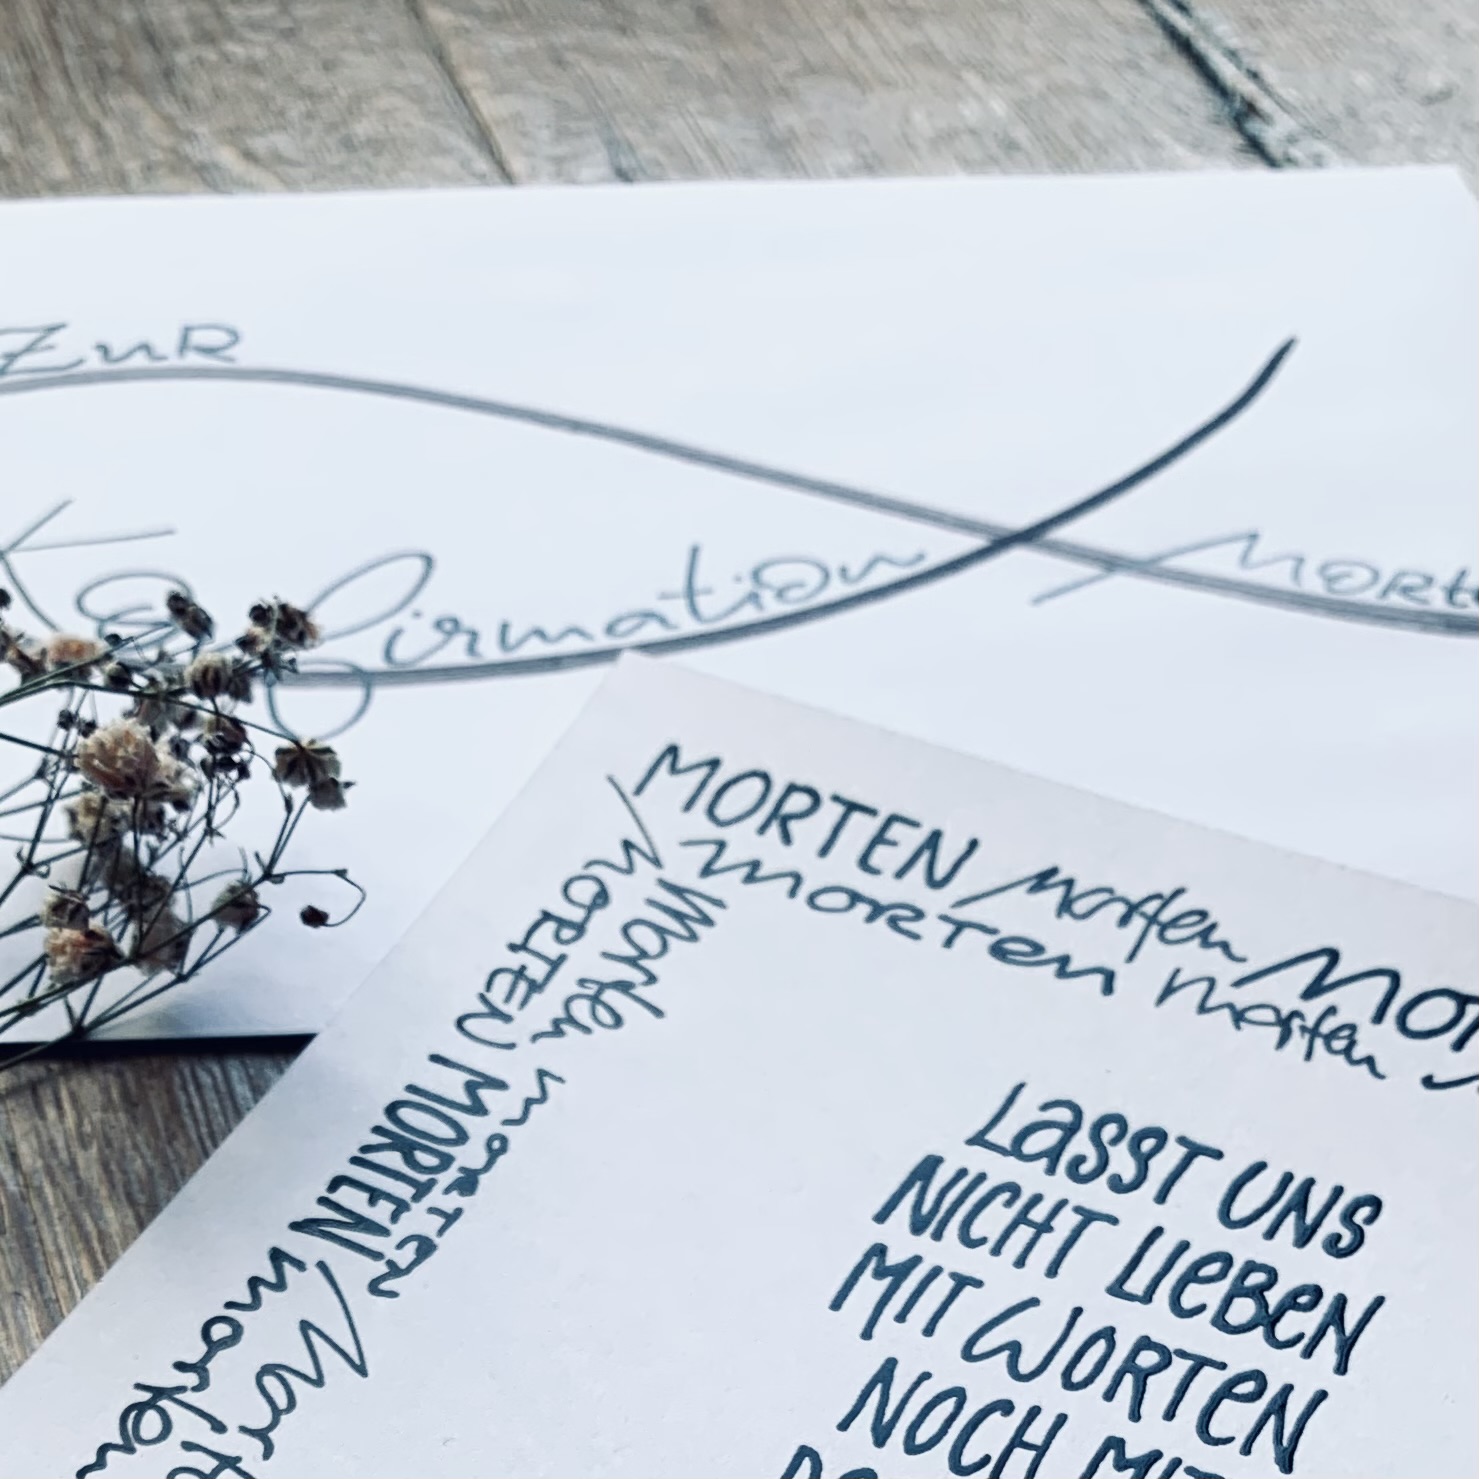 ZUR
Konfirmation
MORTEN morten
morten morten
Morten MORTEN MORTEN morten
Morten morten
LASST UNS
NICHT LIEBEN
MIT WORTEN
NOCH MIT